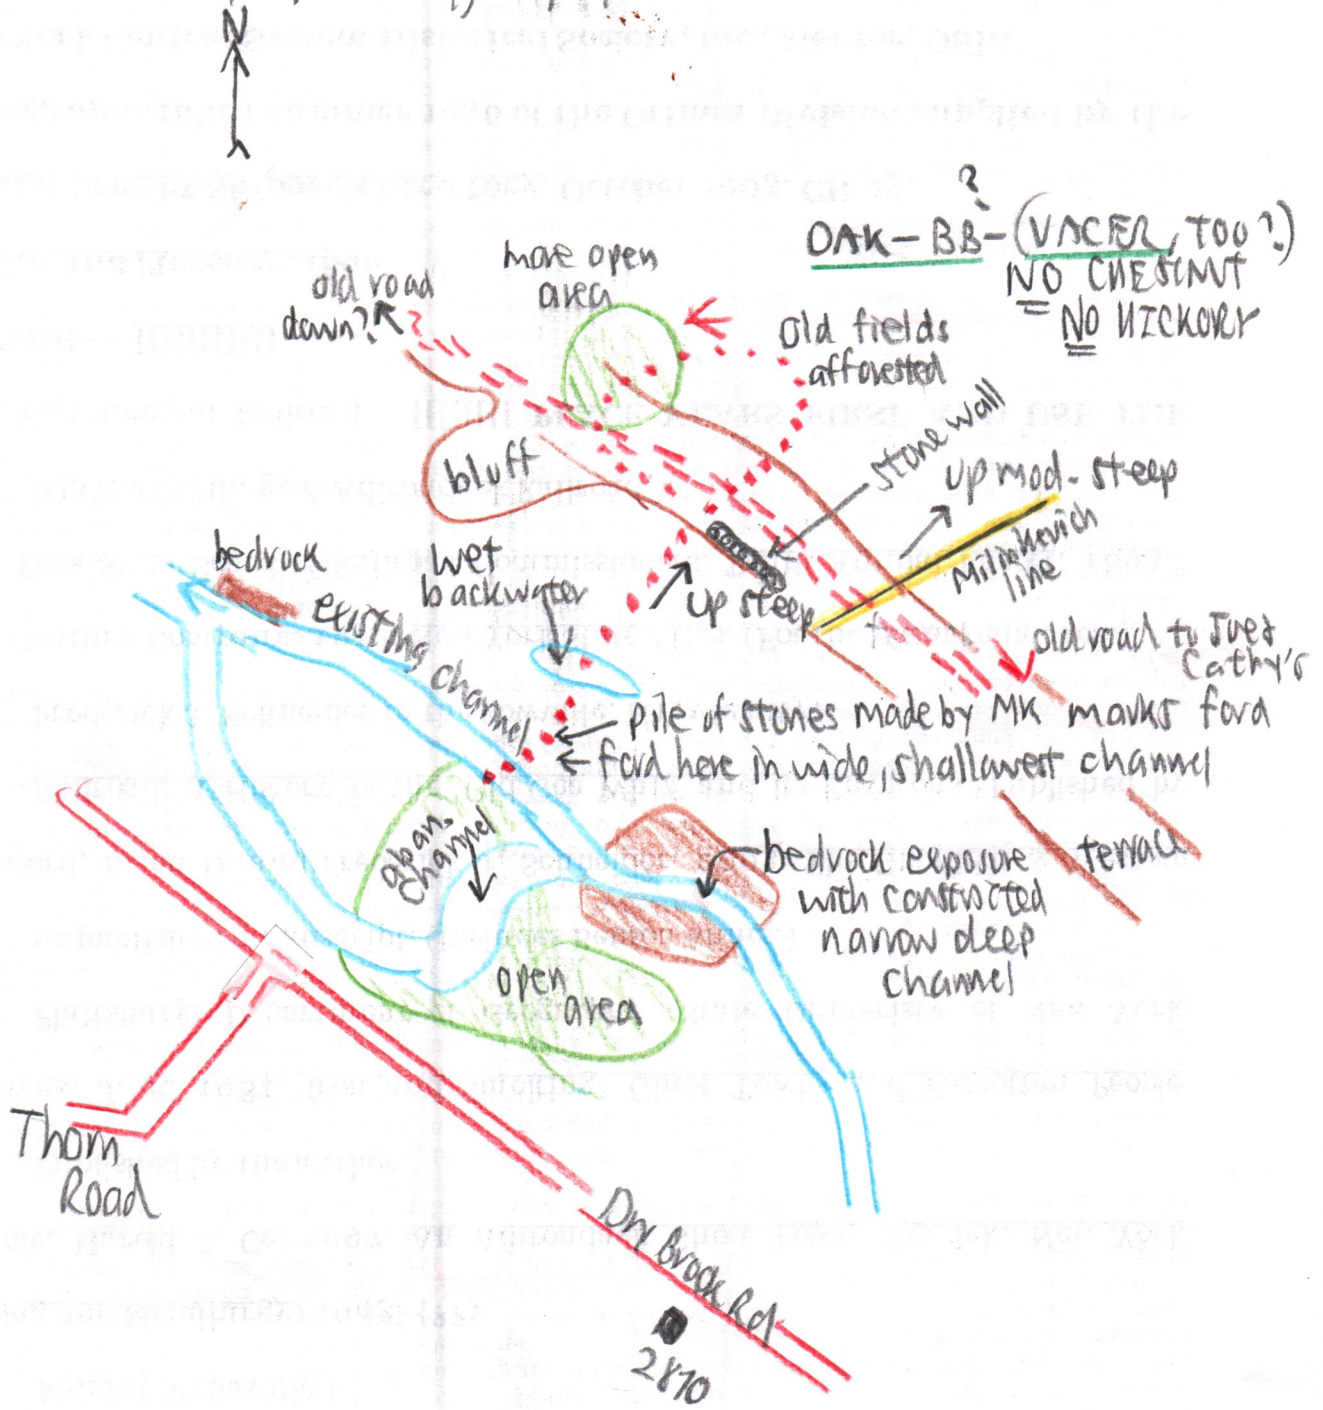 N
?
OAK-BB-(VACER, TOO?)
NO CHESTNUT
NO HICKORY
more open
area
old road
down?
?
old fields
afforested
stone wall
bluff
up mod-steep
Milinkevich
line
bedrock
wet
backwater
existing channel
up steep
old road to Joe &
Cathy's
pile of stones made by MK marks ford
ford here in wide, shallowest channel
channel
bedrock exposure
with constricted
narrow deep
channel
terrace
open
area
Thom
Road
Dry Brook Rd
2870